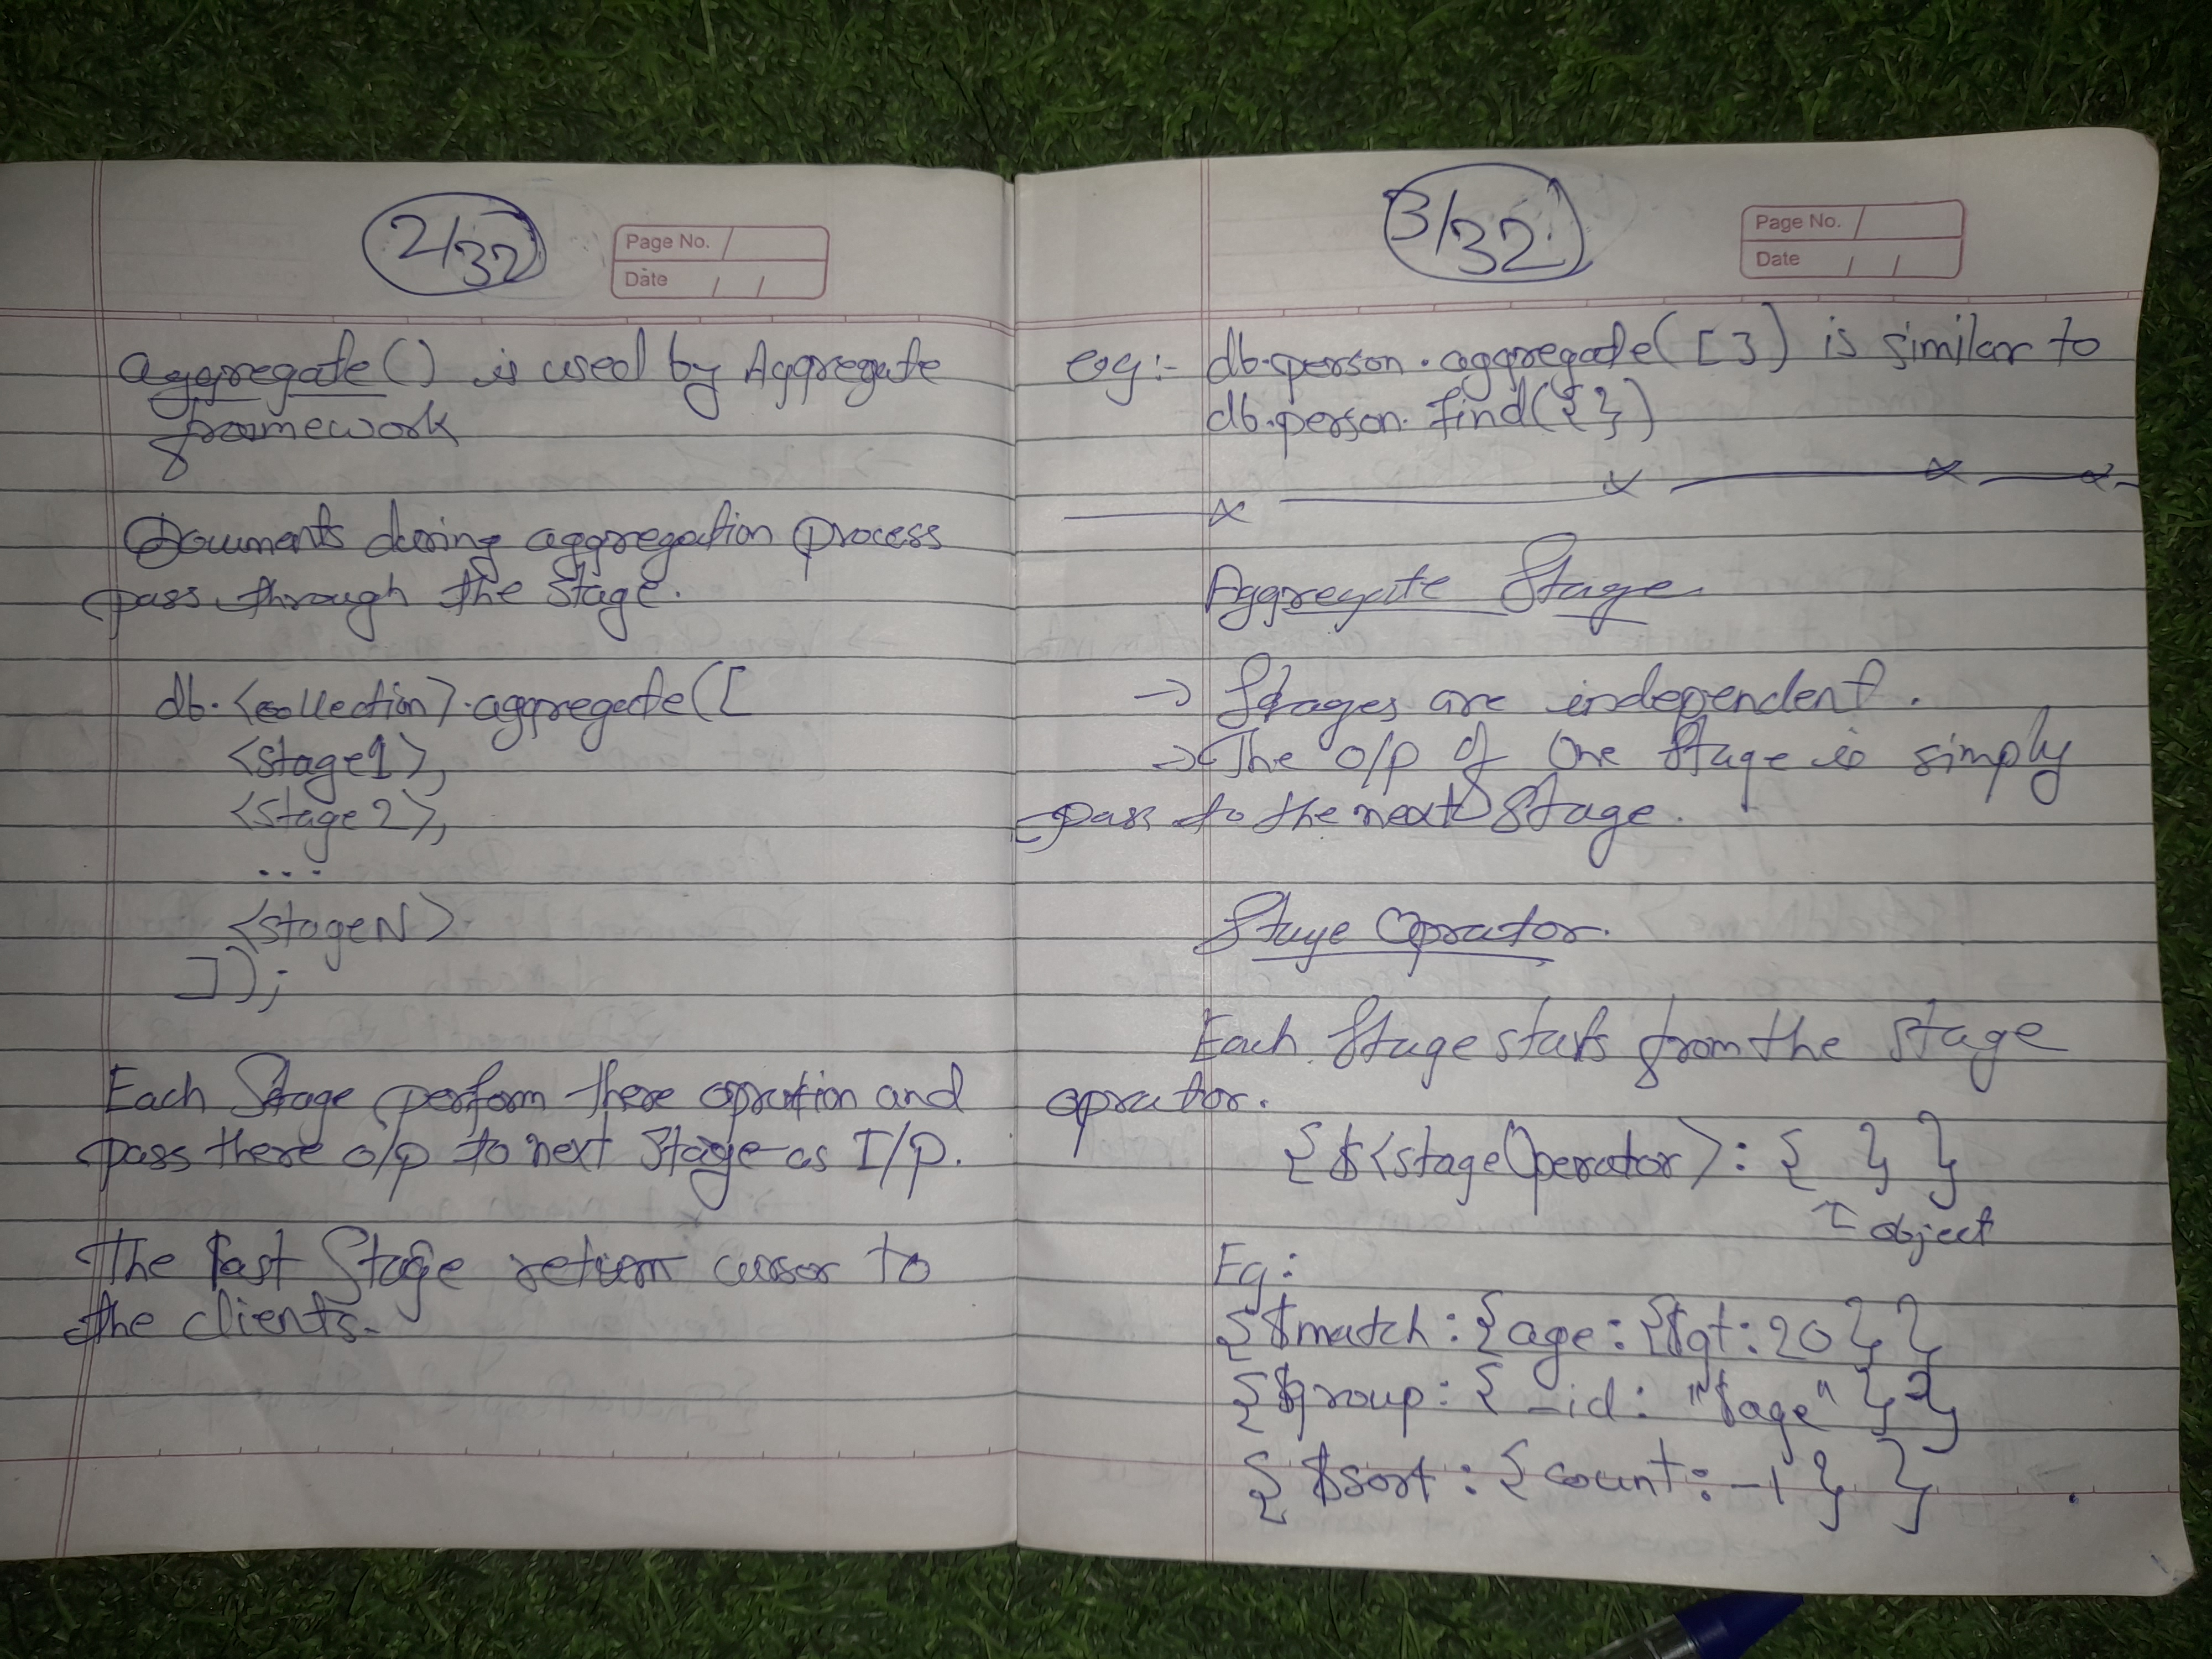 2/32
Page No.
Date / /
aggregate() is used by Aggregate
framework
Documents during aggregation process
pass through the stage.
db.<collection>.aggregate([
<stage1>,
<stage2>,
...
<stageN>
]);
Each Stage perform there opration and
pass there o/p to next Stage as I/p.
The last Stage return cursor to
the clients.
3/32
Page No.
Date / /
eg:- db.person.aggregate([]) is similar to
db.person.find({})
Aggregate Stage
→ Stages are independent.
→ The o/p of one stage is simply
pass to the next Stage.
Stage Oprator.
Each Stage starts from the stage
oprator.
{$<stageOperator>: { } }
↑ object
Eg:
{$match: {age: {$gt: 20}}}
{$group: { _id: "$age" }}
{ $sort: {count: -1}}